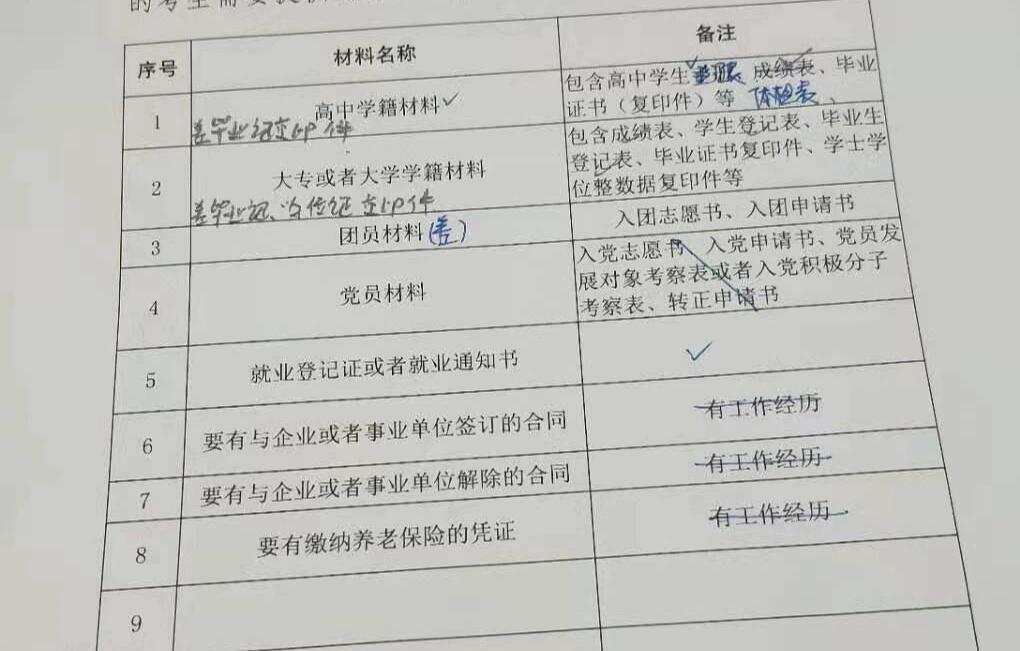 的考生需要提供
序号 材料名称 备注
1 高中学籍材料✓ 包含高中学生 成绩表、毕业
证书（复印件）等 体检表、
差毕业证复印件
2 大专或者大学学籍材料 包含成绩表、学生登记表、毕业生
登记表、毕业证书复印件、学士学
位整数据复印件等
差毕业证、学位证复印件
3 团员材料(差) 入团志愿书、入团申请书
4 党员材料 入党志愿书、入党申请书、党员发
展对象考察表或者入党积极分子
考察表、转正申请书
5 就业登记证或者就业通知书 ✓
6 要有与企业或者事业单位签订的合同 有工作经历
7 要有与企业或者事业单位解除的合同 有工作经历
8 要有缴纳养老保险的凭证 有工作经历
9